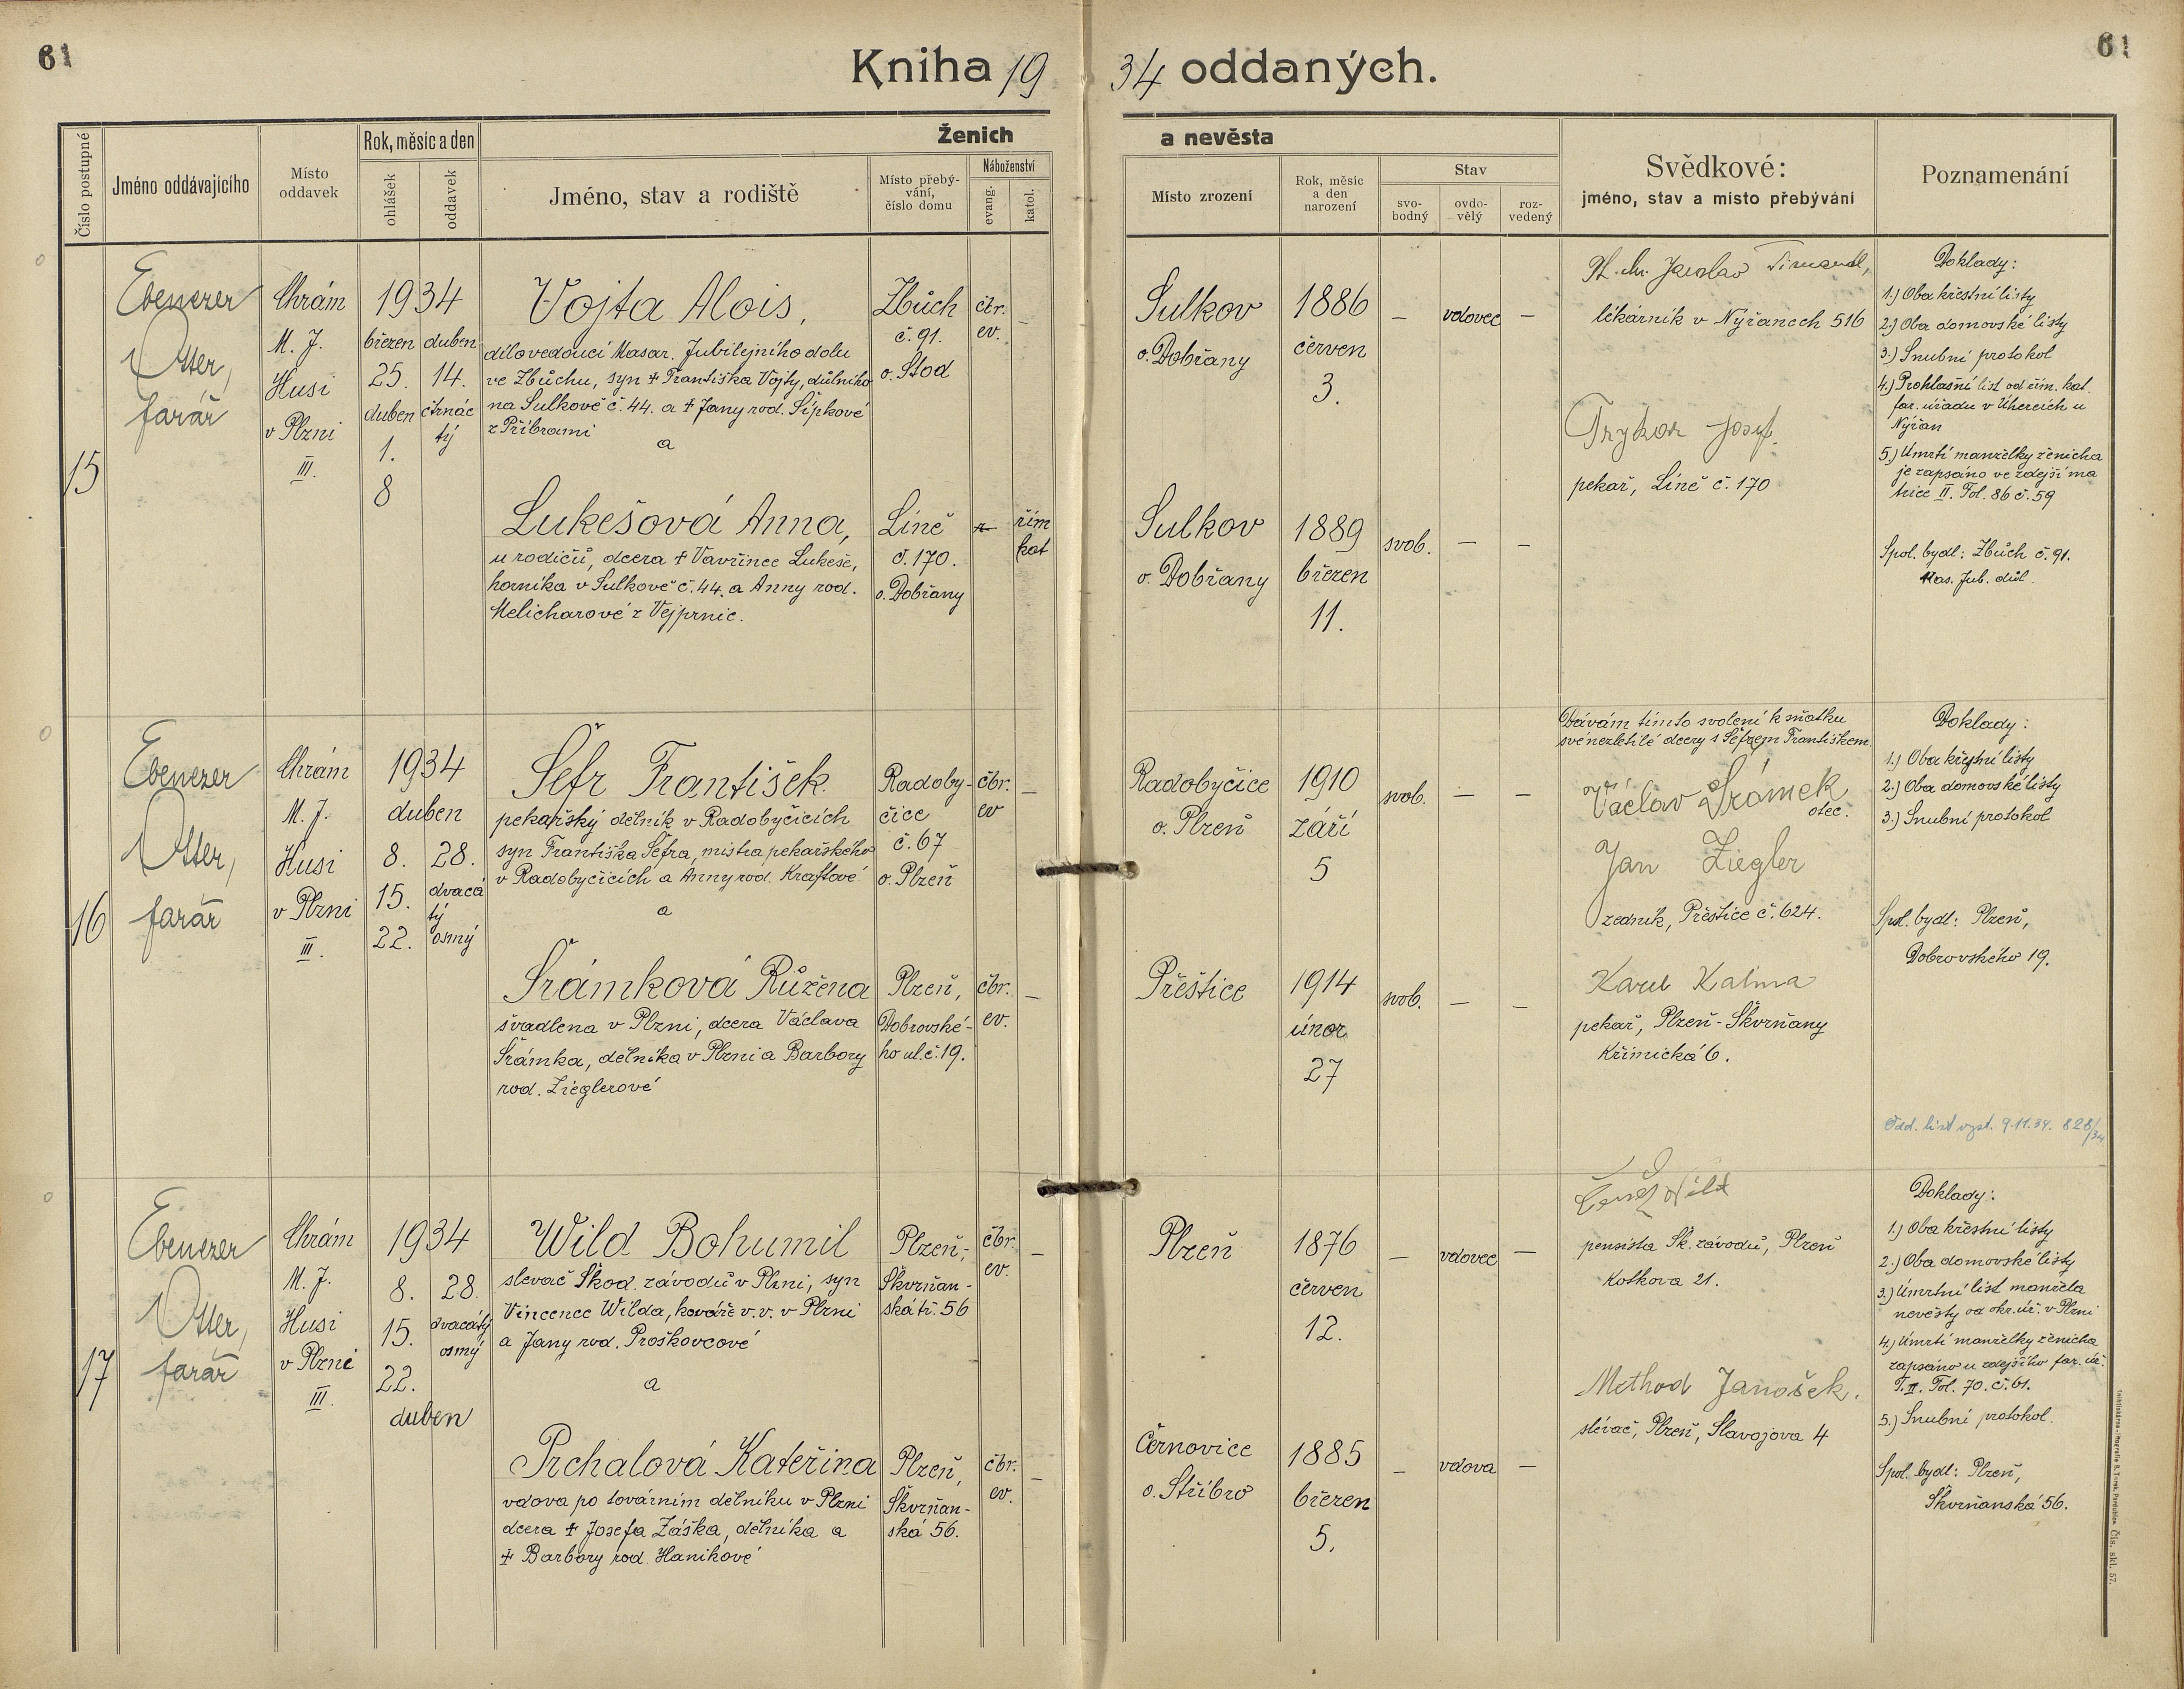 61
Kniha 1934 oddaných.
61
Číslo postupné
Jméno oddávajícího
Místo oddavek
Rok, měsíc a den
ohlášek
oddavek
Ženich a nevěsta
Jméno, stav a rodiště
Místo přebý-
vání,
číslo domu
Náboženství
evang.
katol.
Místo zrození
Rok, měsíc
a den
narození
Stav
svo-
bodný
ovdo-
vělý
roz-
vedený
Svědkové:
jméno, stav a místo přebývání
Poznamenání
15
Ebenezer
Otter,
farář
Chrám
M. J.
Husi
v Plzni
III.
1934
březen duben
25. 14.
duben čtrnác
1. tý
8
Vojta Alois,
dílovedoucí Masar. Jubilejního dolu
ve Zbůchu, syn † Františka Vojty, důlního
na Sulkově č. 44. a † Jany rod. Šípkové
z Příbrami
a
Zbůch
č. 91.
o. Stod
čtr.
ev.
–
Sulkov
o. Dobřany
1886
červen
3.
– vdovec –
Jaroslav
lékárník v Nýřanech 516
Josef
pekař, Líně č. 170
Lukešová Anna,
u rodičů, dcera † Vavřince Lukeše,
horníka v Sulkově č. 44. a Anny rod.
Melicharové z Vejprnic.
Líně
č. 170.
o. Dobřany
řím
kat
Sulkov
o. Dobřany
1889
březen
11.
svob. – –
Doklady:
1.) Oba křestní listy
2.) Oba domovské listy
3.) Snubní protokol
4.) Prohlašní list od řím. kat.
far. úřadu v Úhercích u
Nýřan
5.) Úmrtí manželky ženicha
je zapsáno ve zdejší ma
trice II. Fol. 86 č. 59
Spol. bydl: Zbůch č. 91.
Mas. Jub. důl
16
Ebenezer
Otter,
farář
Chrám
M. J.
Husi
v Plzni
III.
1934
duben
8. 28.
15. dvacá
tý
22. osmý
Šefr František
pekařský dělník v Radobyčicích
syn Františka Šefra, mistra pekařského
v Radobyčicích a Anny rod. Kraftové
a
Radoby-
čice
č. 67
o. Plzeň
čbr.
ev
–
Radobyčice
o. Plzeň
1910
září
5
svob. – –
Dávám tímto svolení k sňatku
své nezletilé dcery s Šefrem Františkem.
Václav Šrámek
otec.
Jan Ziegler
zedník, Přeštice č. 624.
Karel Kalina
pekař, Plzeň-Škvrňany
Křimická 6.
Šrámková Růžena
švadlena v Plzni, dcera Václava
Šrámka, dělníka v Plzni a Barbory
rod. Zieglerové
Plzeň,
Dobrovské-
ho ul. č. 19.
čbr.
ev.
–
Přeštice
1914
únor
27
svob. – –
Doklady:
1.) Oba křestní listy
2.) Oba domovské listy
3.) Snubní protokol
Spol. bydl: Plzeň,
Dobrovského 19.
Odd. list vyst. 9.11.34. 828/34
17
Ebenezer
Otter,
farář
Chrám
M. J.
Husi
v Plzni
III.
1934
8. 28.
15. dvacátý
osmý
22.
duben
Wild Bohumil
slevač Škod. závodů v Plzni, syn
Vincence Wilda, kováře v. v. v Plzni
a Jany rod. Proškovcové
a
Plzeň,
Škvrňan-
ská tř. 56
čbr.
ev.
–
Plzeň
1876
červen
12.
– vdovec –
Wild
pensista Šk. závodů, Plzeň
Kotkova 21.
Method Janošek.
slévač, Plzeň, Slavojova 4
Prchalová Kateřina
vdova po továrním dělníku v Plzni
dcera † Josefa Záška, dělníka a
† Barbory rod. Haníkové
Plzeň,
Škvrňan-
ská 56.
čbr.
ev.
–
Černovice
o. Stříbro
1885
březen
5.
– vdova –
Doklady:
1.) Oba křestní listy
2.) Oba domovské listy
3.) Úmrtní list manžela
nevěsty od okr. úř. v Plzni
4.) Úmrtí manželky ženicha
zapsáno u zdejšího far. úř.
T. II. Fol. 70. č. 61.
5.) Snubní protokol.
Spol. bydl: Plzeň,
Škvrňanská 56.
Čís. skl. 57.